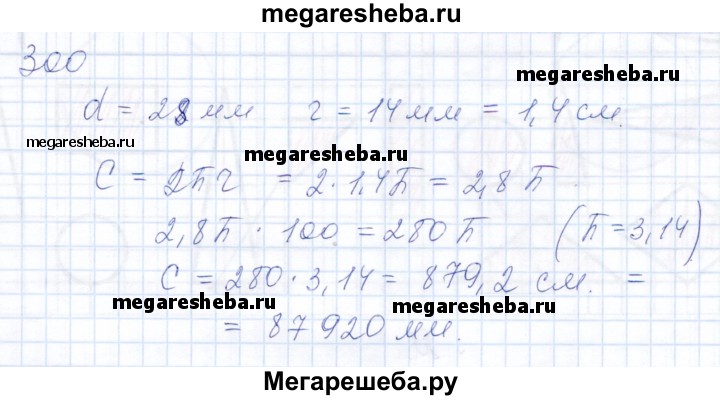 megaresheba.ru
300
megaresheba.ru
d = 28 мм r = 14 мм = 1,4 см.
megaresheba.ru
megaresheba.ru
C = 2Пr = 2·1,4П = 2,8П.
2,8П · 100 = 280П (П = 3,14)
C = 280·3,14 = 879,2 см. =
megaresheba.ru megaresheba.ru
= 87920 мм.
Мегарешеба.ру